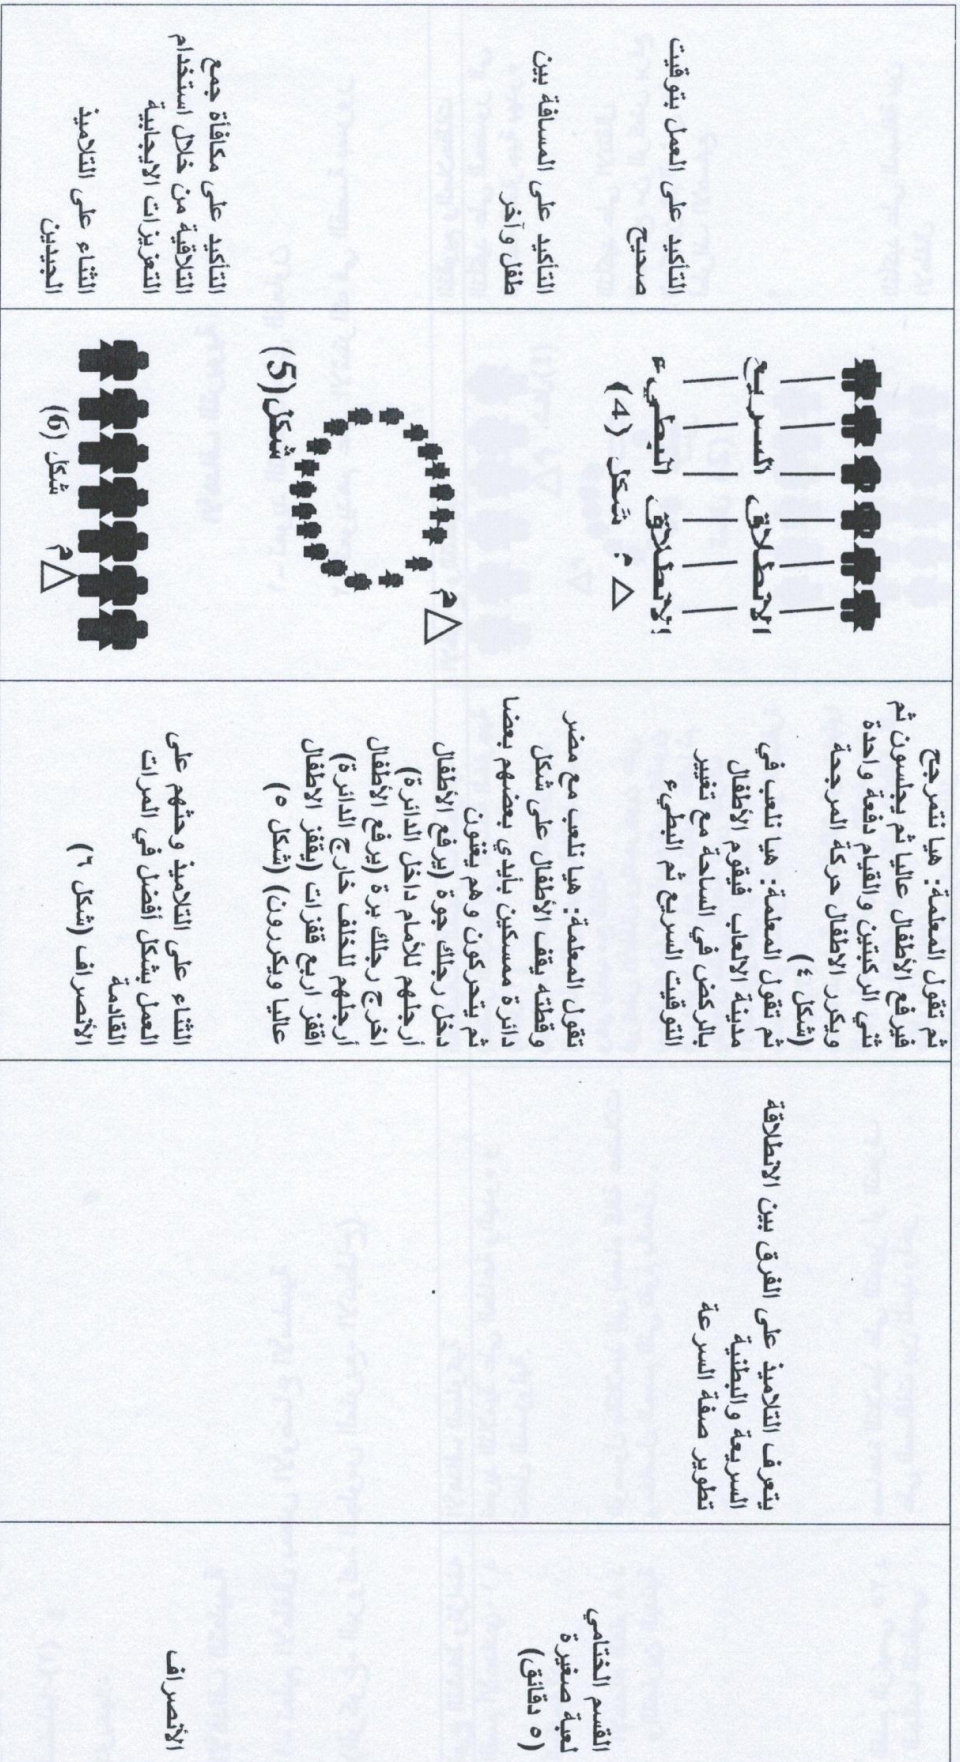 القسم الختامي
لعبة صغيرة
(٥ دقائق)
الأنصراف
يتعرف التلاميذ على الفرق بين الانطلاقة
السريعة والبطئية
تطوير صفة السرعة
ثم تقول المعلمة: هيا نتمرجح
فيرفع الأطفال عاليا ثم يجلسون ثم
ثني الركبتين والقيام دفعة واحدة
ويكرر الاطفال حركة المرجحة
(شكل ٤)
ثم تقول المعلمة: هيا نلعب في
مدينة الالعاب فيقوم الأطفال
بالركض في الساحة مع تغيير
التوقيت السريع ثم البطيء
تقول المعلمة: هيا نلعب مع مضر
وقطته يقف الأطفال على شكل
دائرة ممسكين بأيدي بعضهم بعضا
ثم يتحركون وهم يغنون
دخل رجلك جوة (يرفع الأطفال
أرجلهم للأمام داخل الدائرة)
اخرج رجلك برة (يرفع الأطفال
أرجلهم للخلف خارج الدائرة)
اقفز اربع قفزات (يقفز الاطفال
عاليا ويكررون) (شكل ٥)
الثناء على التلاميذ وحثهم على
العمل بشكل أفضل في المرات
القادمة
الأنصراف (شكل ٦)
الانطلاق السريع
الانطلاق البطيء
م شكل (4)
م
شكل (5)
م
شكل (6)
التأكيد على العمل بتوقيت
صحيح
التأكيد على المسافة بين
طفل وآخر
التأكيد على مكافأة جمع
التلاقية من خلال استخدام
التعزيزات الايجابية
الثناء على التلاميذ
الجيدين